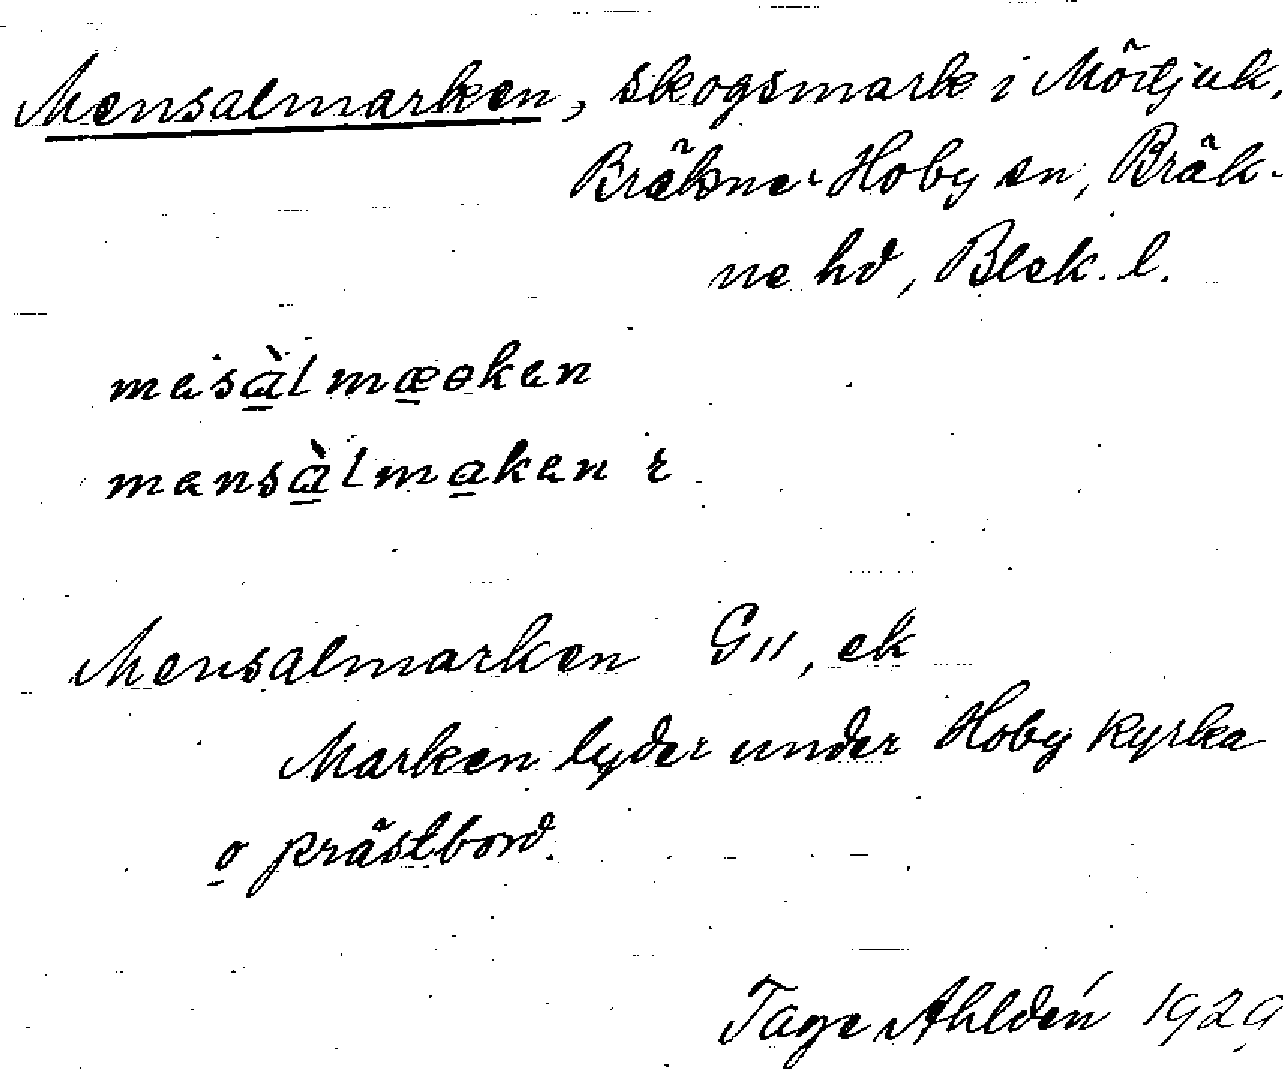 Mensalmarken, skogsmark i Mörtjuk,
Bräkne-Hoby sn, Bräk-
ne hd, Blek. l.
mesàlmæokan
mensàlmakan r
Mensalmarken G11, ek
Marken lyder under Hoby kyrka
o prästbord.
Tage Ahldén 1929